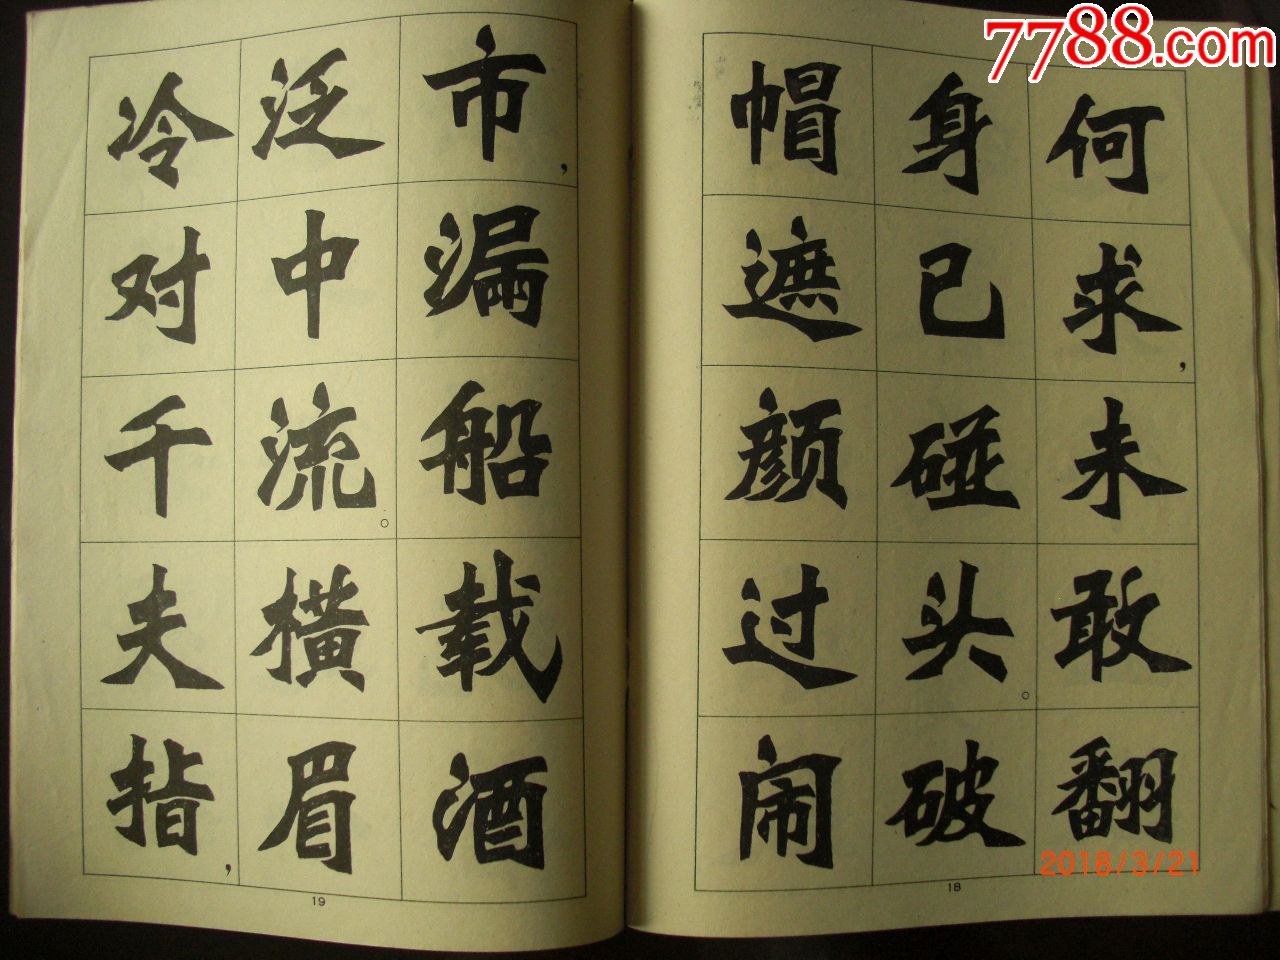 7788.com
何求，未敢翻
身已碰头。破
帽遮颜过闹
市，漏船载酒
泛中流。横眉
冷对千夫指，
18
19
2018/3/21